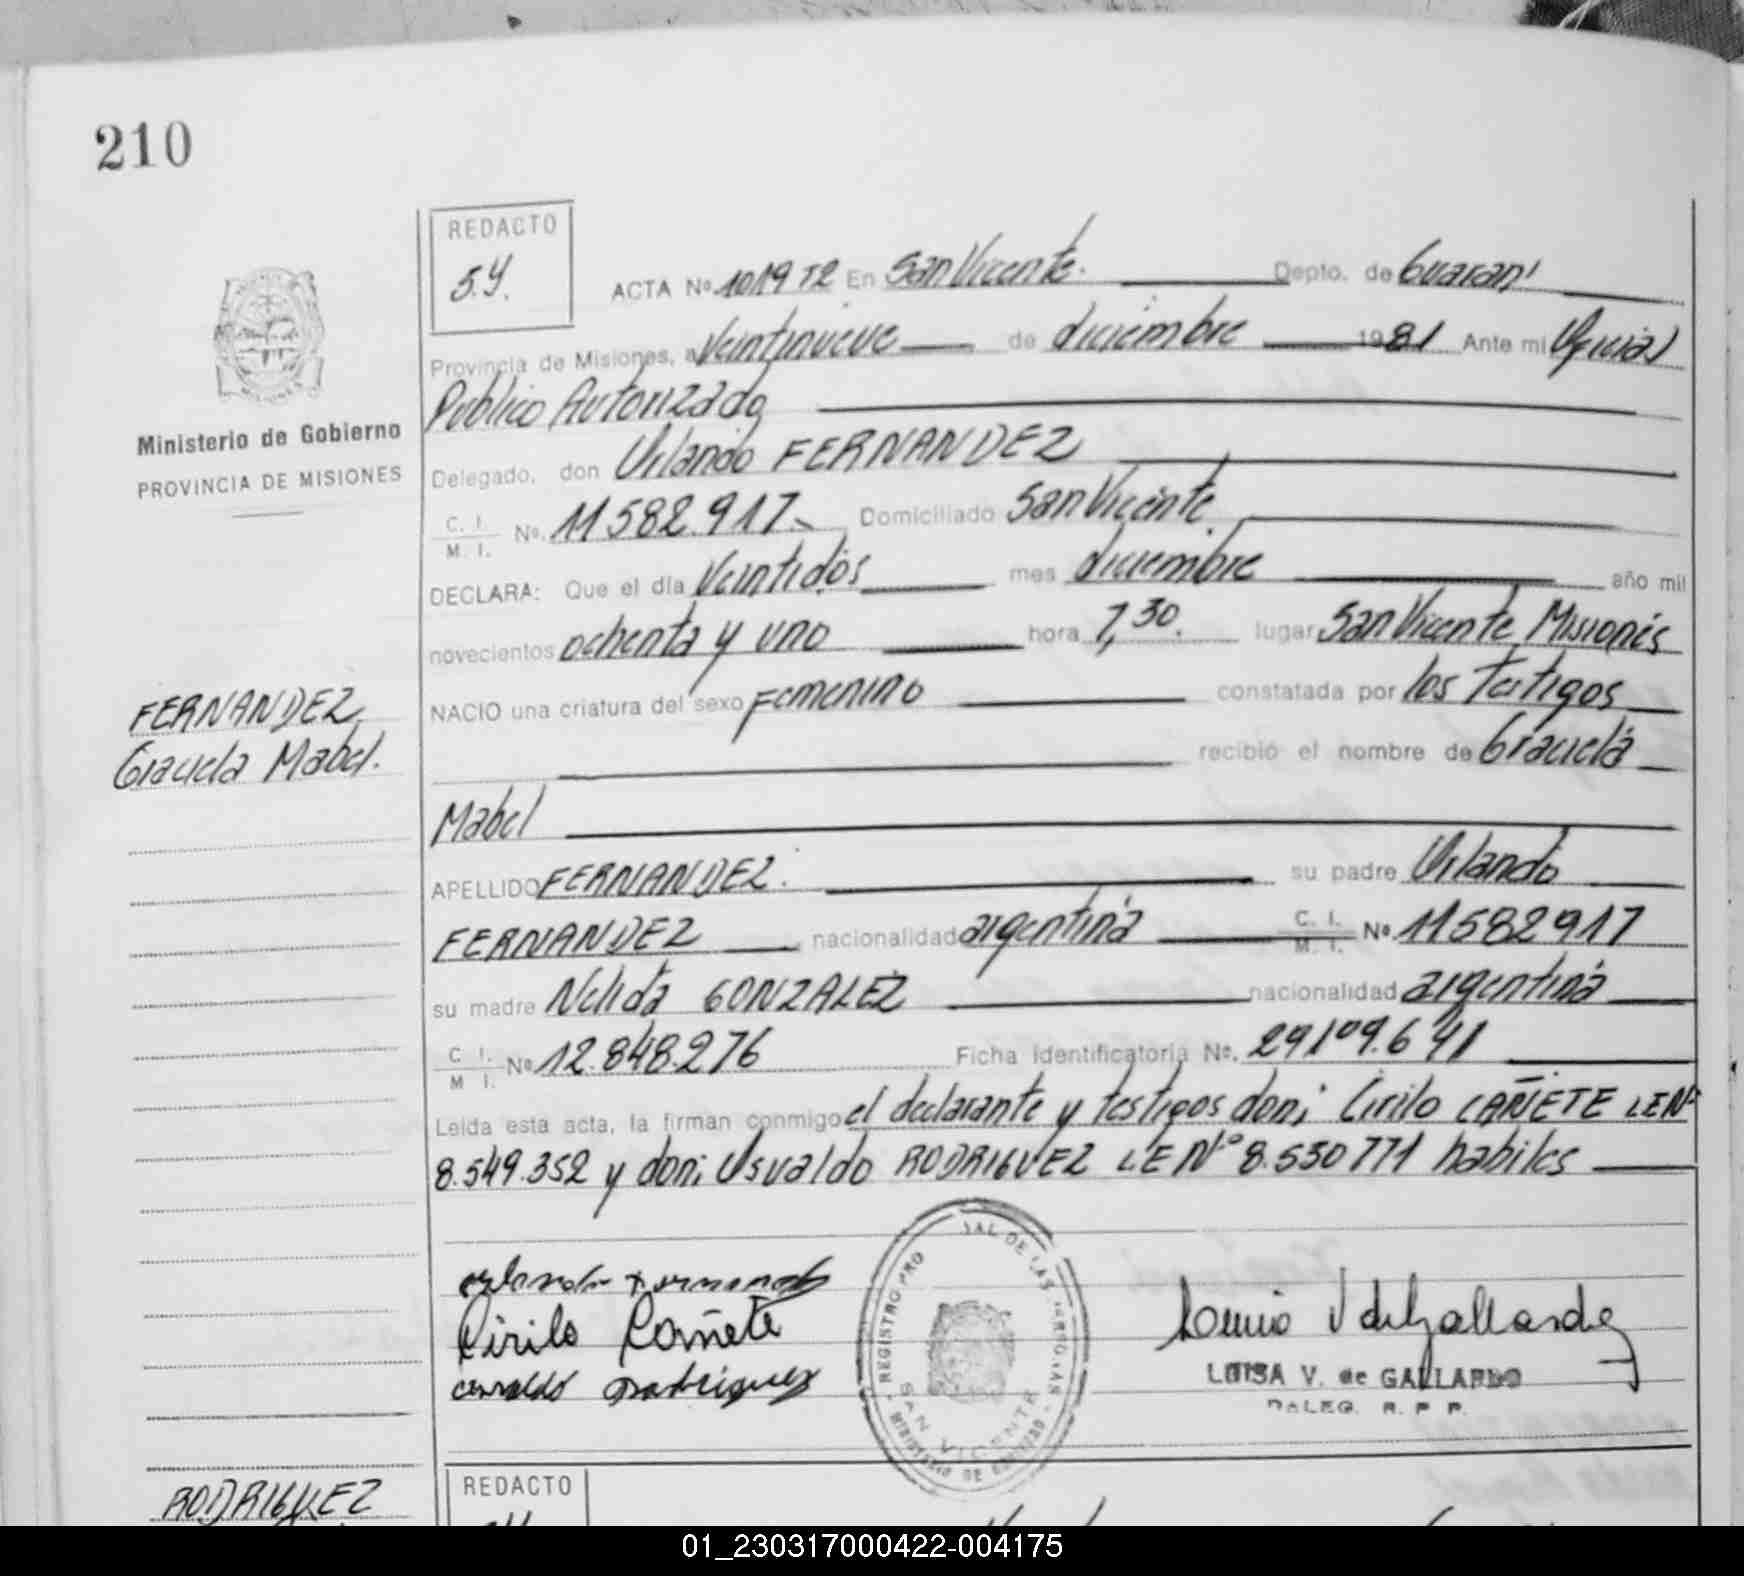 210
REDACTO
S.Y.
ACTA Nº 1019 T2 En San Vicente. Depto. de Guaraní
Provincia de Misiones, a Veintinueve de diciembre 1981 Ante mi Oficial
Publico Autorizado
Delegado, don Orlando FERNANDEZ
C. I.
M. I. Nº. 11582.917. Domiciliado San Vicente.
DECLARA: Que el día Veintidós mes diciembre año mil
novecientos ochenta y uno hora 7,30. lugar San Vicente Misiones
NACIO una criatura del sexo Femenino constatada por los Testigos
recibió el nombre de Graciela
Mabel
APELLIDO FERNANDEZ. su padre Orlando
FERNANDEZ nacionalidad argentina C. I. M. I. Nº 11582917
su madre Nelida GONZALEZ nacionalidad argentina
C. I.
M. I. Nº 12.848.276 Ficha Identificatoria Nº. 29109.641
Leída esta acta, la firman conmigo el declarante y testigos don; Cirilo CAÑETE LENº
8.549.352 y don; Osvaldo RODRIGUEZ LE Nº 8.530771 habiles
Ministerio de Gobierno
PROVINCIA DE MISIONES
FERNANDEZ
Graciela Mabel.
Orlando Fernandez
Cirilo Cañete
Osvaldo Rodriguez
REGISTRO PRO
AL DE LAS PERSONAS
SAN VICENTE
MINISTERIO DE GOBIERNO
LUISA V. de GALLARDO
DELEG. R. P. P.
RODRIGUEZ
REDACTO
01_230317000422-004175